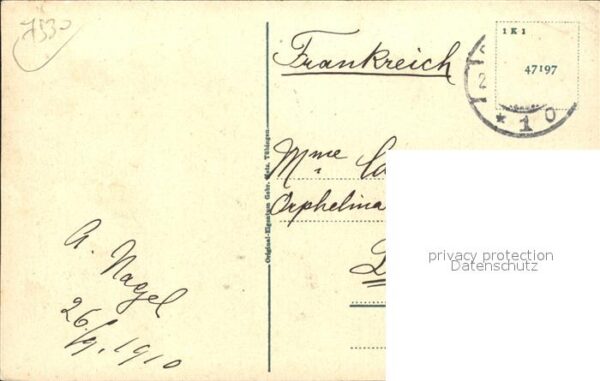 7530
Frankreich
1 K 1
47197
2
* 1 0
Mme
Orphelina
Original-Eigentum Gebr. Metz, Tübingen
A. Nagel
26/9. 1910
privacy protection
Datenschutz